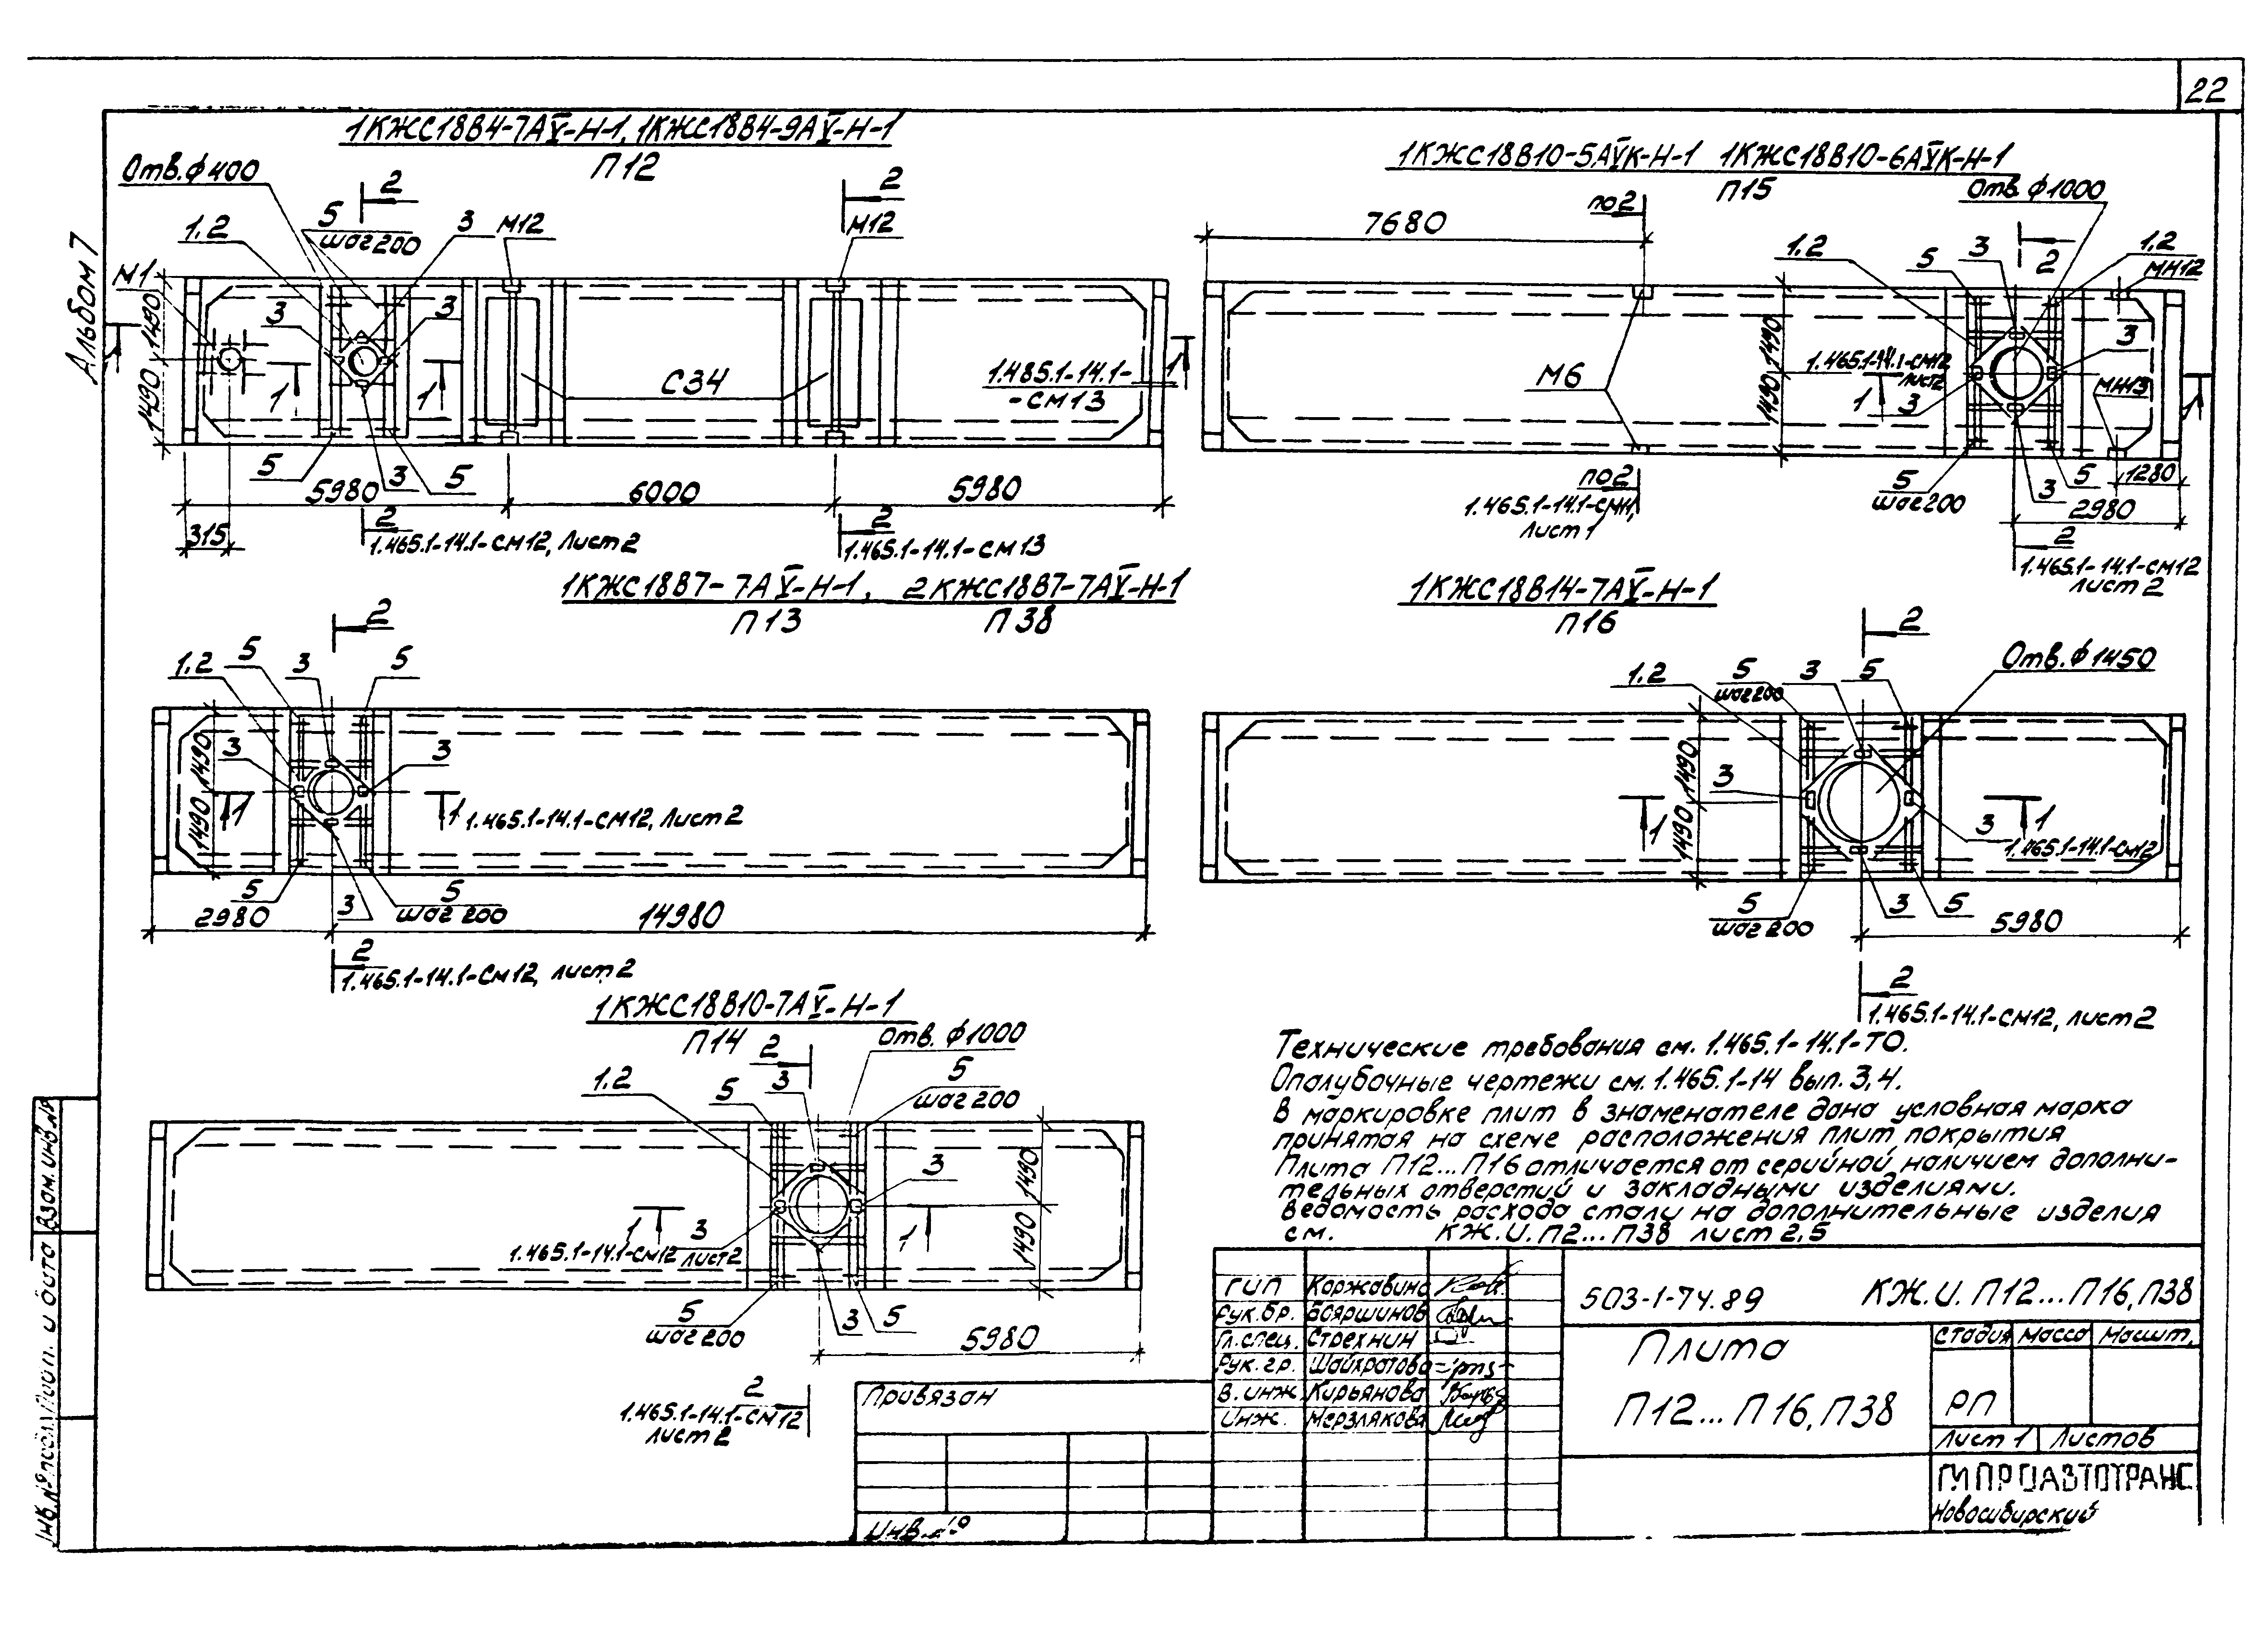 22
Альбом 7
1КЖС18В4-7АV-Н-1, 1КЖС18В4-9АV-Н-1
П12
Отв. ф400
2
2
5
шаг 200
1.2
3
М12
М12
М1
3
3
1490
1490
1
1
С34
1.485.1-14.1-
-СМ13
1
5
3
5
5980
6000
5980
315
2
1.465.1-14.1-СМ12, Лист 2
2
1.465.1-14.1-СМ13
1КЖС18В10-5АVК-Н-1 1КЖС18В10-6АVК-Н-1
П15
Отв. ф1000
по2
7680
1.2
5
3
2
1.2
МН12
1490
1490
3
1.465.1-14.1-СМ12
Лист2
М6
1
3
МН13
5
шаг200
3
5
1280
2980
по2
1.465.1-14.1-СМ11,
Лист 1
2
1.465.1-14.1-СМ12
Лист 2
1КЖС18В7-7АV-Н-1, 2КЖС18В7-7АV-Н-1
П13 П38
2
1.2
5
3
5
3
3
1490
1490
1
1
1.465.1-14.1-СМ12, Лист 2
5
3
5
шаг 200
2980
14980
2
1.465.1-14.1-СМ12, лист 2
1КЖС18В14-7АV-Н-1
П16
2
Отв. ф1450
1.2
5
шаг 200
3
5
1490
1490
3
3
1
1
1.465.1-14.1-СМ12
5
шаг 200
3
5
5980
2
1.465.1-14.1-СМ12, лист 2
1КЖС18В10-7АV-Н-1
П14
2
Отв. ф1000
1.2
5
3
5
шаг 200
3
1490
1490
1
3
1
1.465.1-14.1-СМ12 лист 2
5
шаг 200
3
5
5980
2
1.465.1-14.1-СМ12
лист 2
Технические требования см. 1.465.1-14.1-ТО.
Опалубочные чертежи см. 1.465.1-14 вып. 3,4.
В маркировке плит в знаменателе дана условная марка
принятая на схеме расположения плит покрытия
Плита П12...П16 отличается от серийной наличием дополни-
тельных отверстий и закладными изделиями.
Ведомость расхода стали на дополнительные изделия
см. КЖ.И.П2...П38 лист 2,5
ГИП Коржавина
Рук.бр. Бояршинов
Гл.спец. Стрехнин
Рук.гр. Шайхратова
В.инж Кирьянова
Инж. Мерзлякова
503-1-74.89 КЖ.И.П12...П16,П38
Плита
П12...П16,П38
Стадия Масса Масшт.
РП
Лист 1 Листов
ГИПРОАВТОТРАНС
Новосибирский
Привязан
Инв.№
Взам.инв.№
Подп. и дата
Инв.№подл.